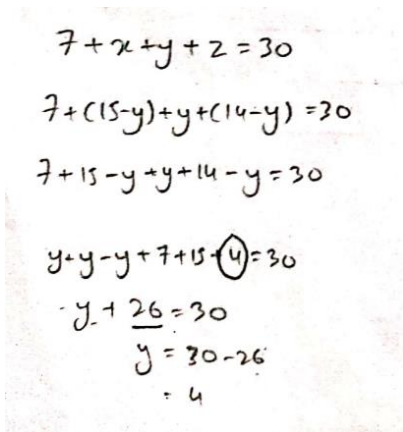 7+x+y+z=30
7+(15-y)+y+(14-y)=30
7+15-y+y+14-y=30
y+y-y+7+15+4=30
-y+26=30
y=30-26
=4